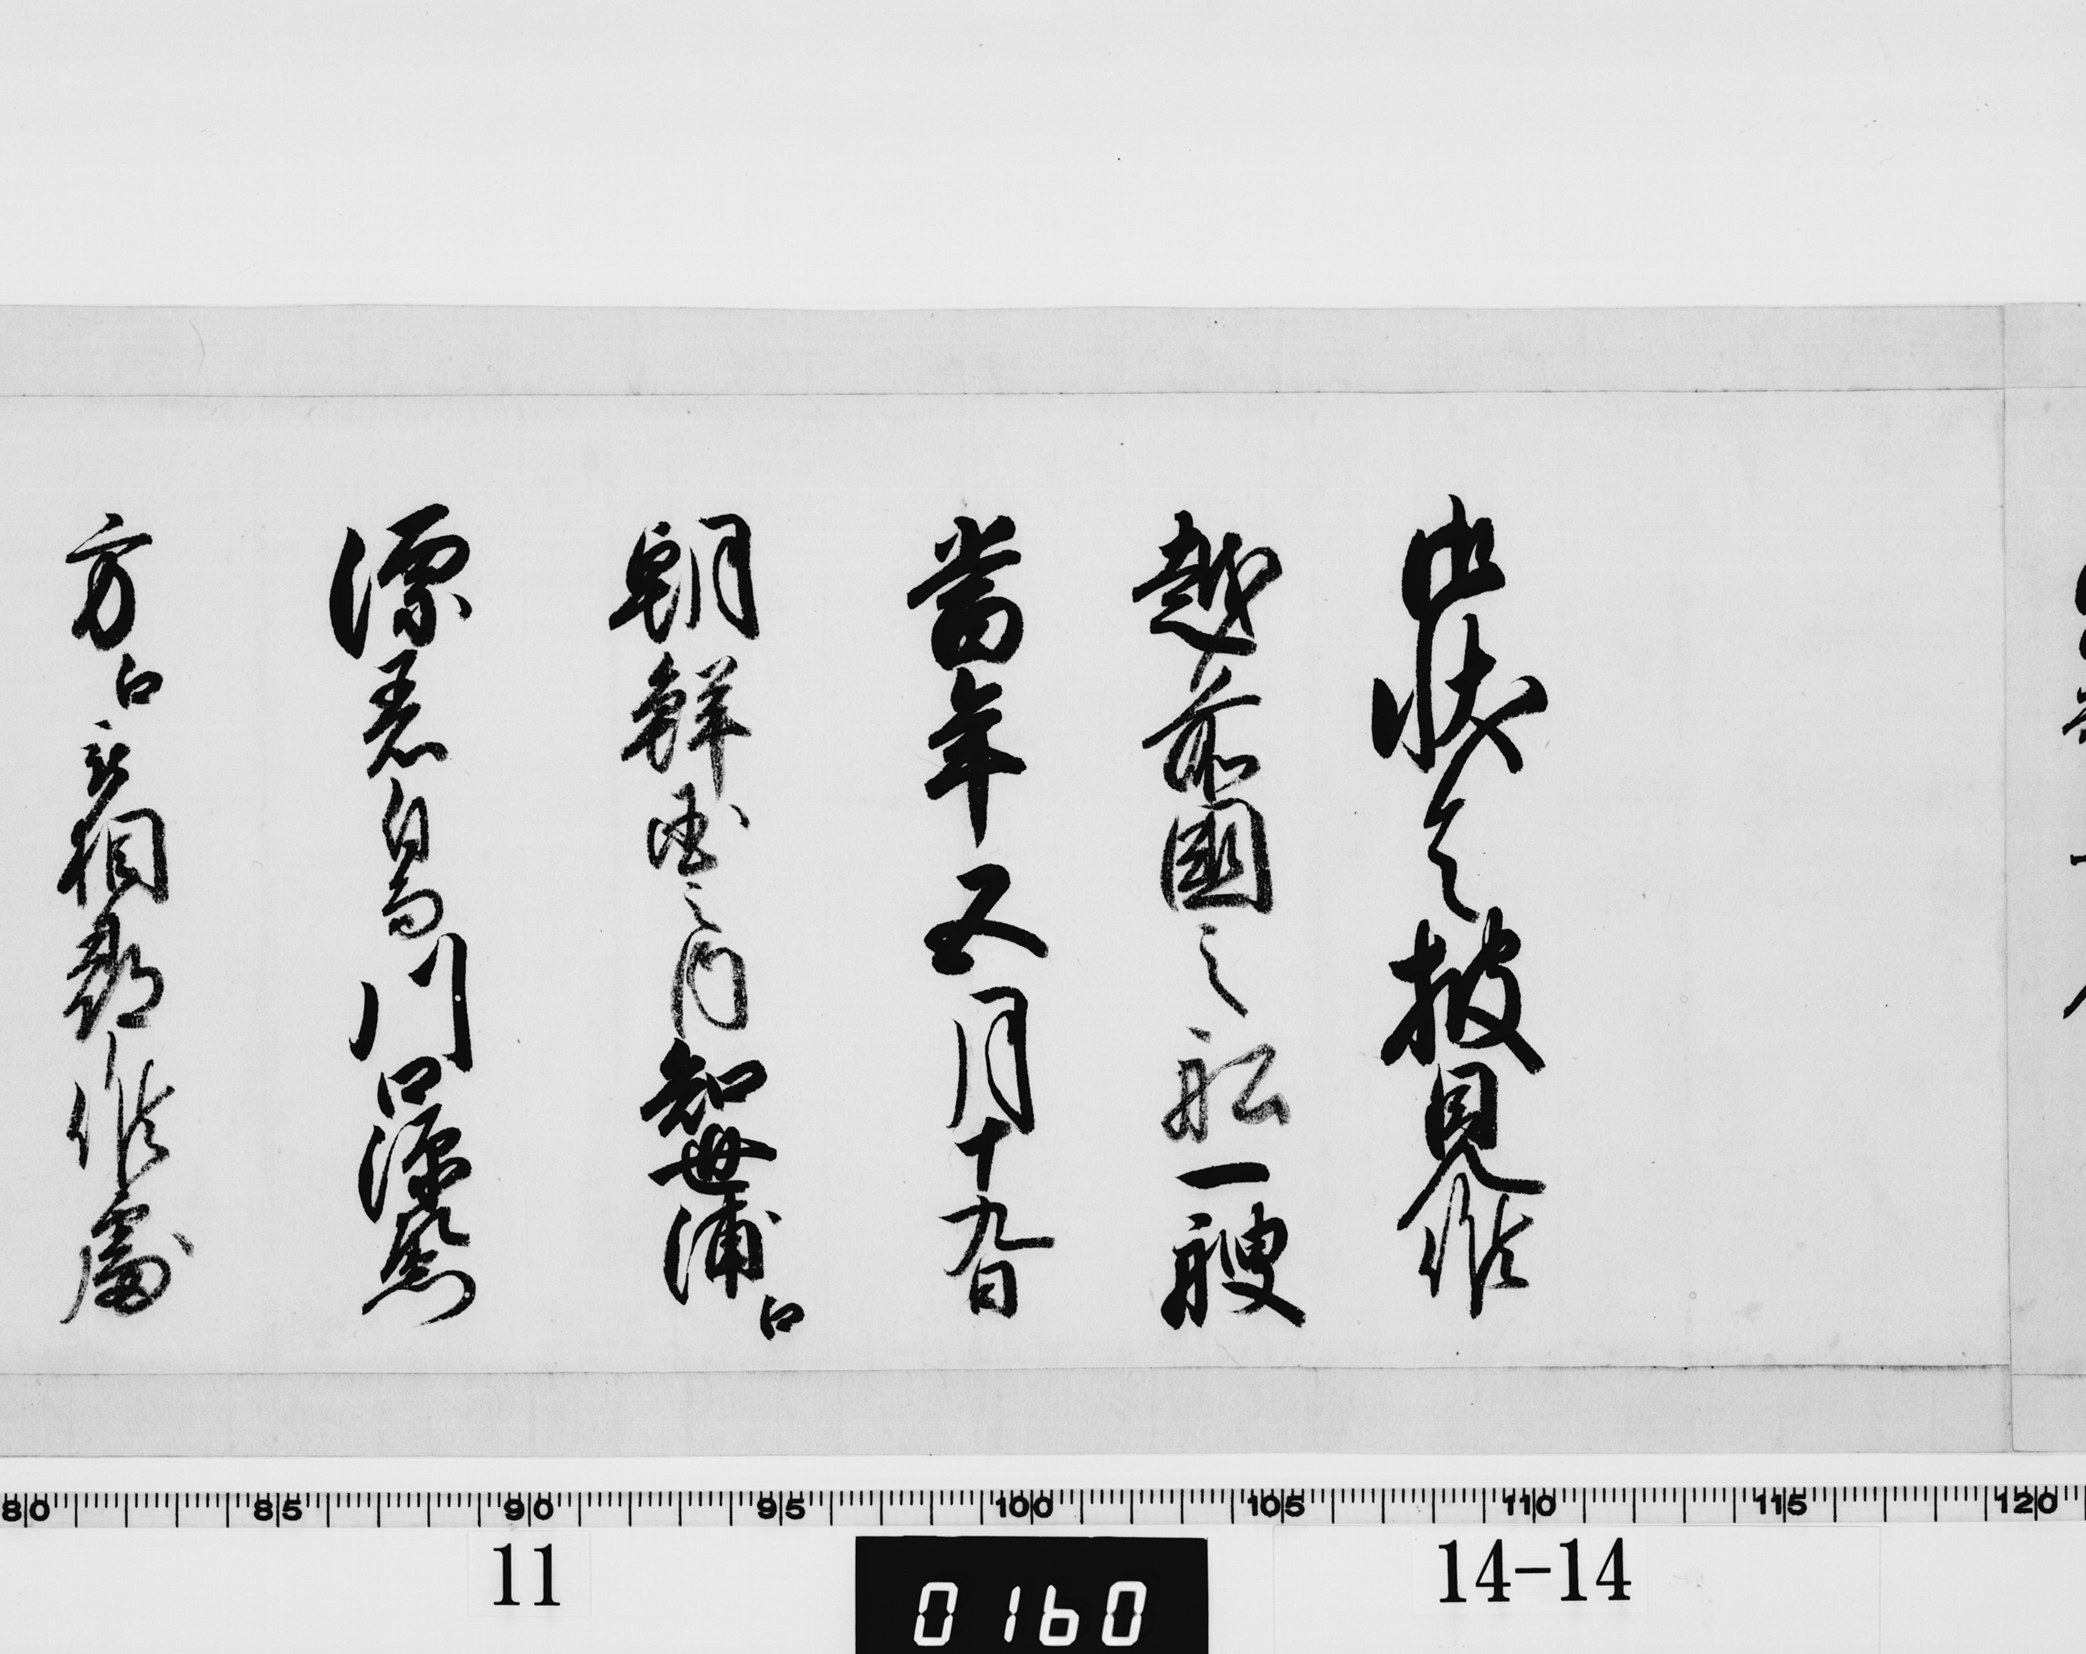 御状令披見候
越前國之舩一艘
當年五月十九日
朝鮮国之内智世浦
漂着自川口源
方相尋候處
80 85 90 95 100 105 110 115 120
11 0160 14-14